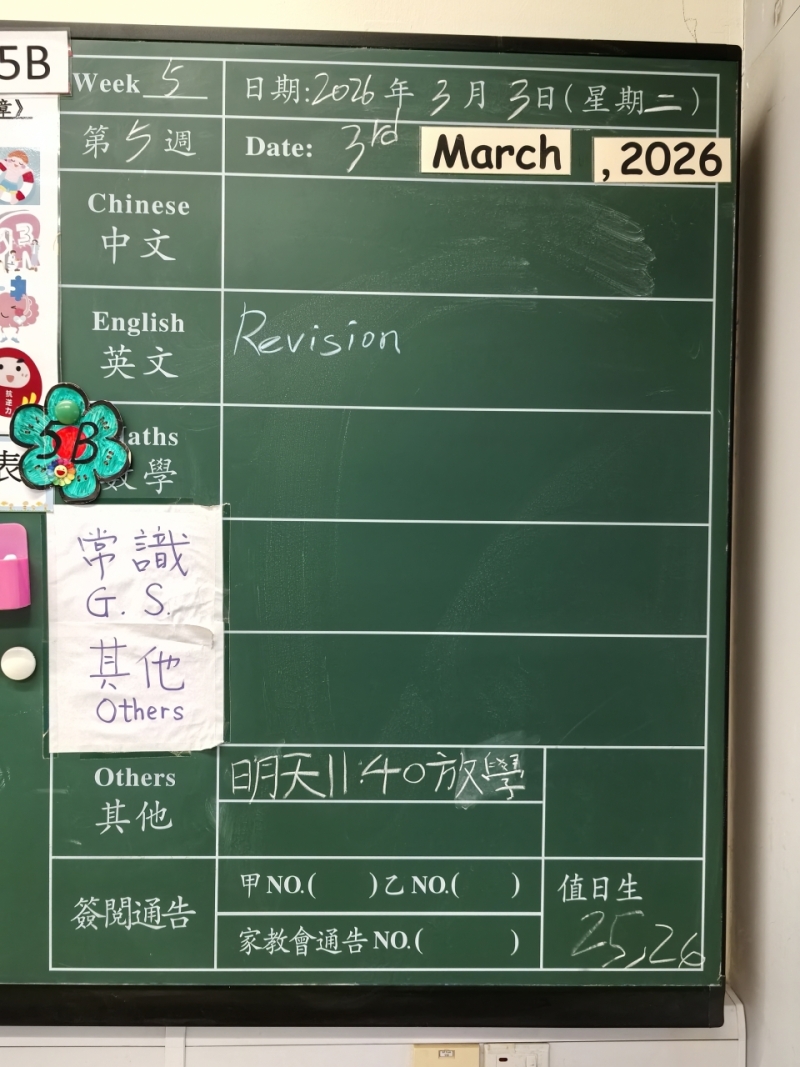 5B
Week 5
日期:2026年3月3日(星期二)
章》
第5週
Date: 3rd March , 2026
Chinese
中文
English
英文
Revision
抗逆力
5B
aths
數學
表
常識
G. S.
其他
Others
Others
其他
明天11:40放學
簽閱通告
甲NO.( )乙NO.( )
家教會通告NO.( )
值日生
25,26